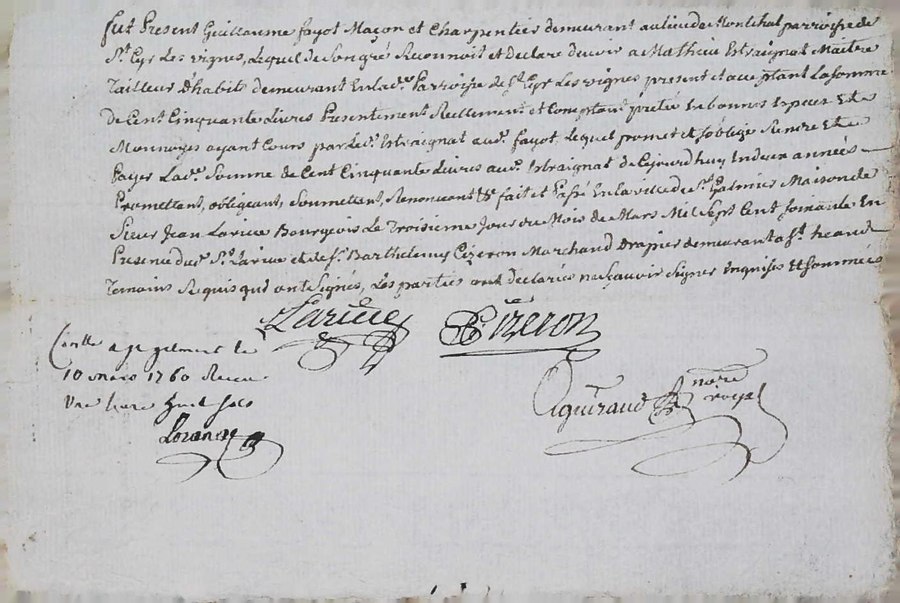 fut Present Guillaume fayot Maçon et Charpentier demeurant au lieu de Montchal parroisse de
St. Cyr Les vignes, Lequel de Son gré Reconnoit et Declare devoir a Mathieu Estraignat Maitre
Tailleur d'habits demeurant En lade. Parroisse de St. Cyr Les vignes present et acceptant La Somme
De Cent Cinquante Livres Presentement Reellement et Comptant prétée En bonnes Especes Et de
Monnoyes ayant Cours par Led. Estraignat aud. fayot, Lequel promet et s'oblige Rendre Et de
Payer Lade. Somme de Cent Cinquante Livres aud. Estraignat de Cejourd'huy En deux années
Promettant, obligeant, Soumettant, Renonçant &c fait et Passé En la ville de St. Galmier Maison de
Sieur Jean Larive Bourgeois Le Troisieme Jour du Mois de Mars Mil Sept Cent Soixante En
Presence dud. Sr. Larive et de Sr. Barthelemy Cizeron Marchand drapier demeurant a St. heand
Temoins Requis qui ont Signés, Les parties ont declarées ne Sçavoir Signer Enquises Et Sommées
Larive Cizeron
Conlle a St galmier le
10 mars 1760 Receu
Une livre huit sols
Aguiraud nore royal